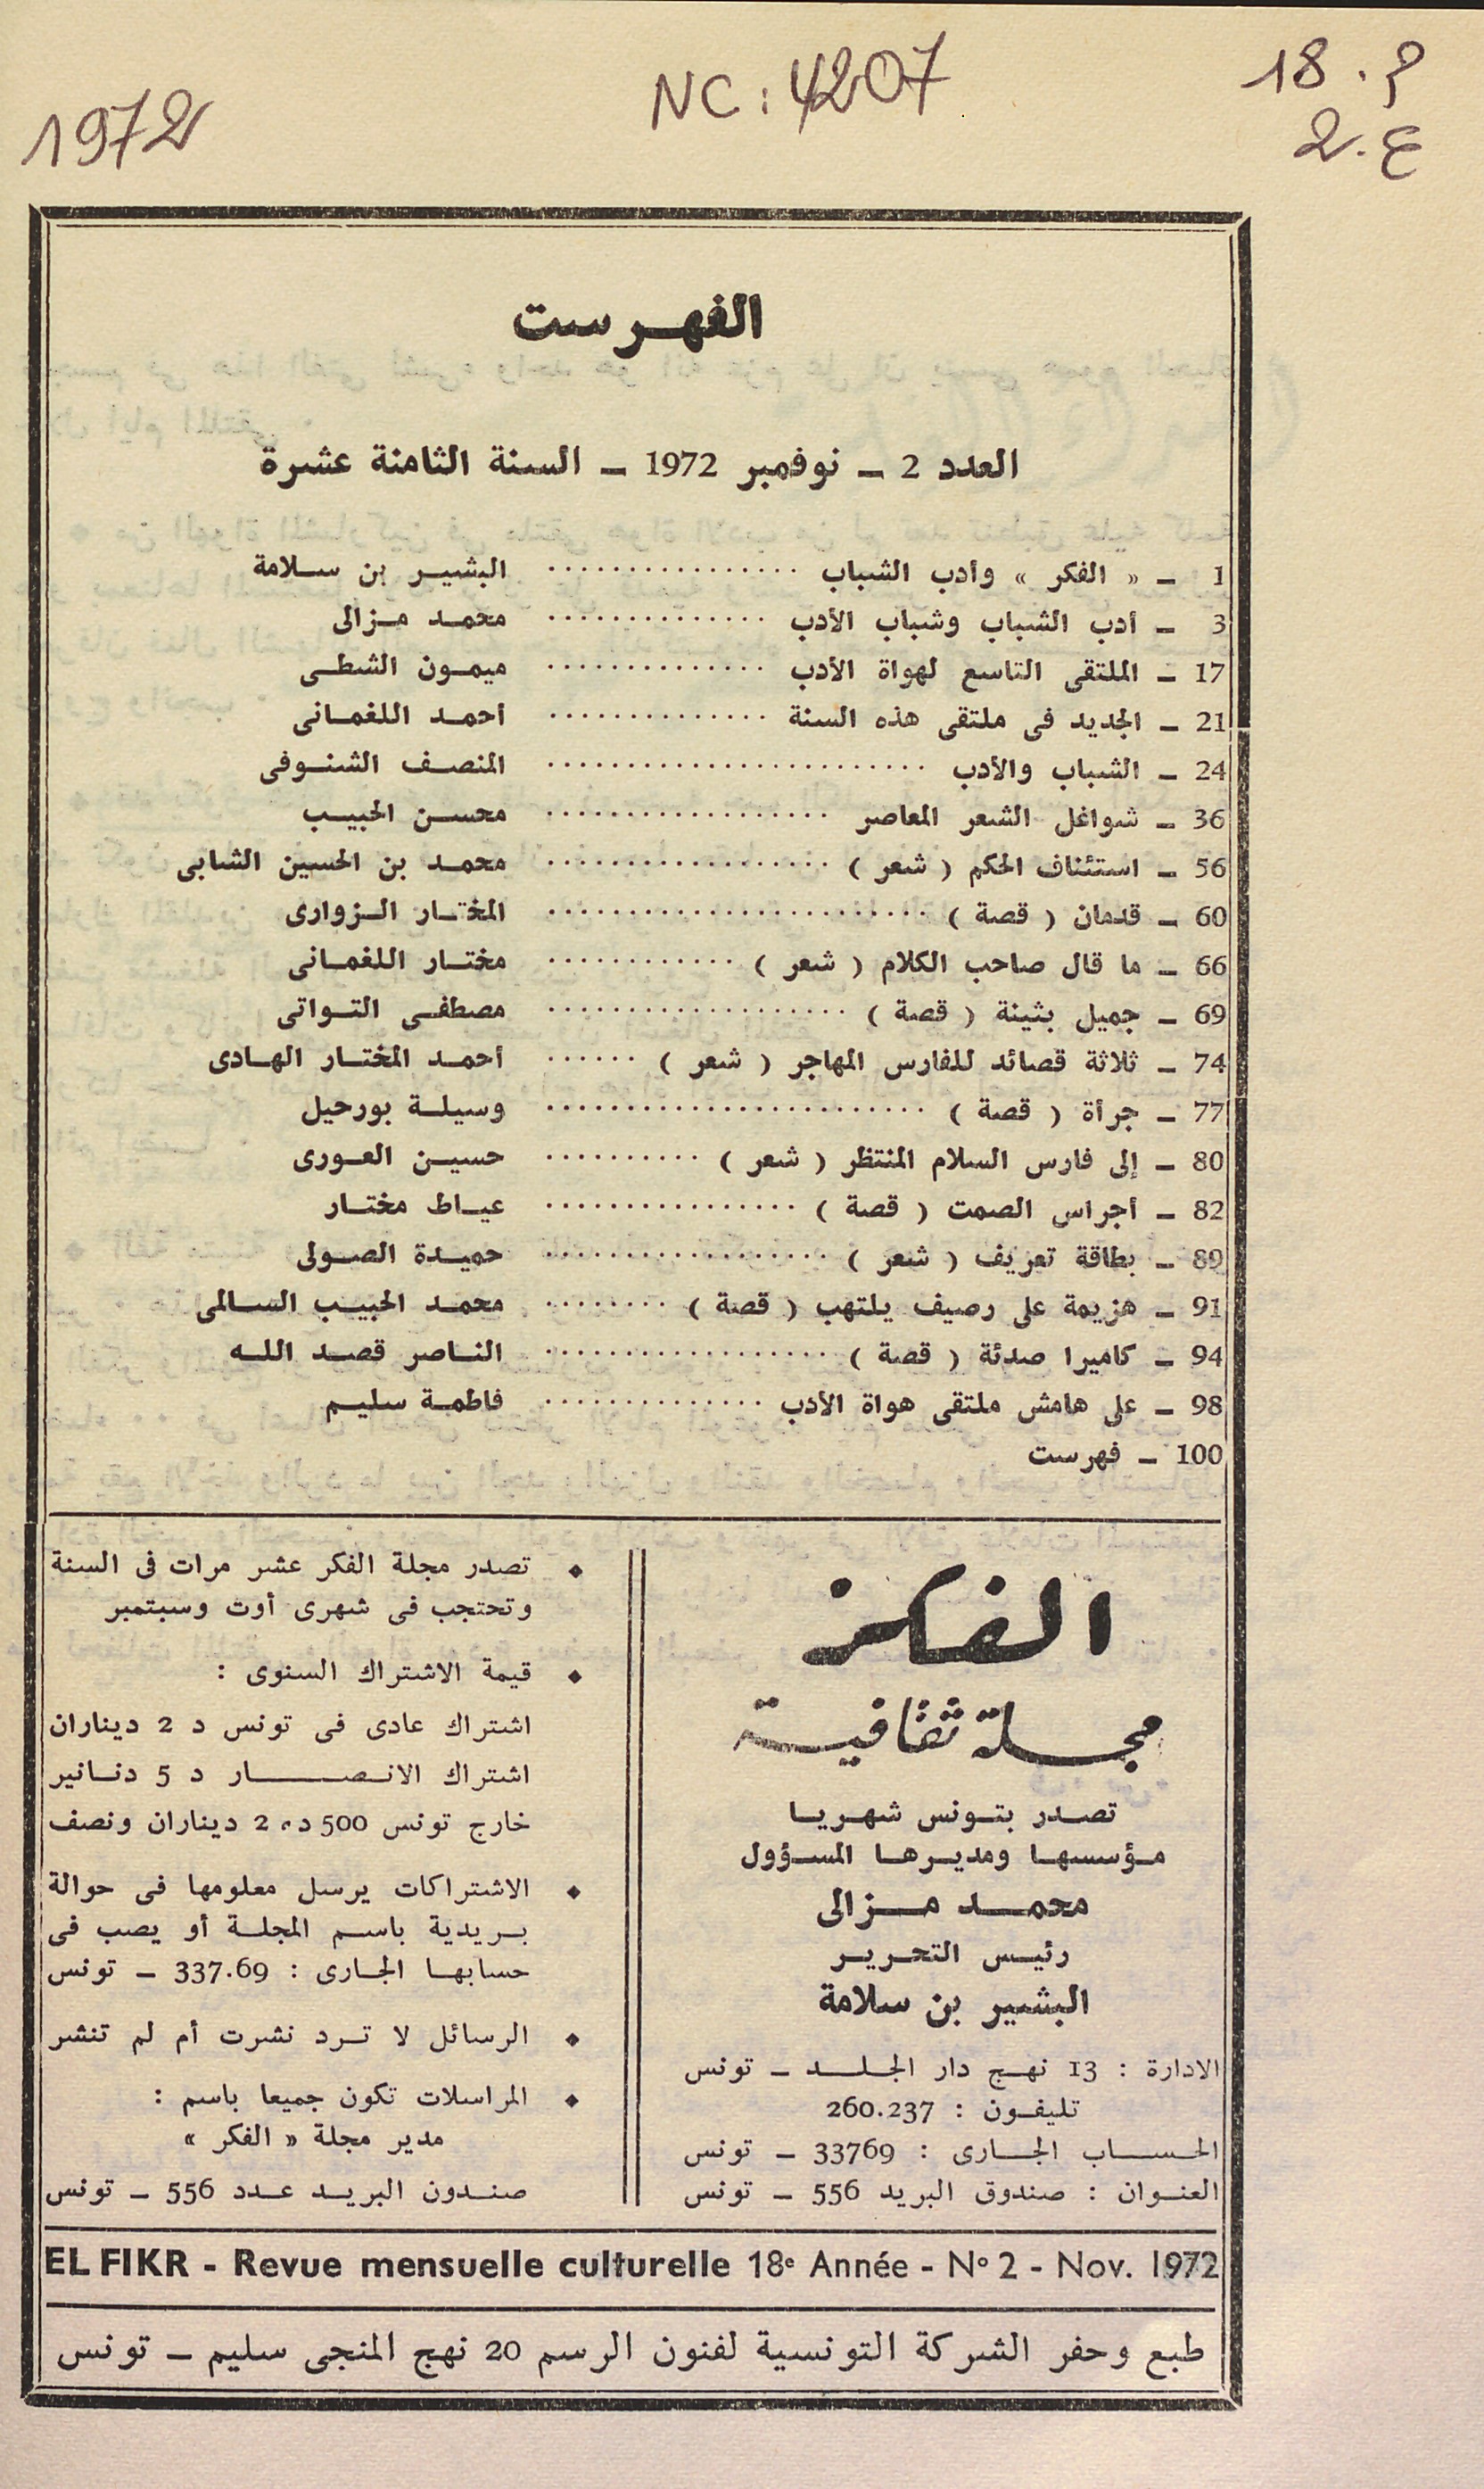 1972
NC : 4207
18 . م
2 . ع
الفهرست
العدد 2 ــ نوفمبر 1972 ــ السنة الثامنة عشرة
1 ــ « الفكر » وأدب الشباب ................ البشير بن سلامة
3 ــ أدب الشباب وشباب الأدب .............. محمد مزالى
17 ــ الملتقى التاسع لهواة الأدب .............. ميمون الشطى
21 ــ الجديد فى ملتقى هذه السنة .............. أحمد اللغمانى
24 ــ الشباب والأدب ........................ المنصف الشنوفى
36 ــ شواغل الشعر المعاصر .................. محسن الحبيب
56 ــ استئناف الحكم ( شعر ) .................. محمد بن الحسين الشابى
60 ــ قدمان ( قصة ) ........................ المختار الزوارى
66 ــ ما قال صاحب الكلام ( شعر ) ............ مختار اللغمانى
69 ــ جميل بثينة ( قصة ) ................... مصطفى التواتى
74 ــ ثلاثة قصائد للفارس المهاجر ( شعر ) ...... أحمد المختار الهادى
77 ــ جرأة ( قصة ) ........................ وسيلة بورحيل
80 ــ إلى فارس السلام المنتظر ( شعر ) .......... حسين العورى
82 ــ أجراس الصمت ( قصة ) ................ عياط مختار
89 ــ بطاقة تعريف ( شعر ) .................. حميدة الصولى
91 ــ هزيمة على رصيف يلتهب ( قصة ) ........ محمد الحبيب السالمى
94 ــ كاميرا صدئة ( قصة ) ................... الناصر قصد الله
98 ــ على هامش ملتقى هواة الأدب .............. فاطمة سليم
100 ــ فهرست
الفكر
مجلة ثقافية
تصدر بتونس شهريا
مؤسسها ومديرها المسؤول
محمد مزالى
رئيس التحرير
البشير بن سلامة
الادارة : 13 نهج دار الجلد ــ تونس
تليفون : 260.237
الحساب الجارى : 33769 ــ تونس
العنوان : صندوق البريد 556 ــ تونس
♦ تصدر مجلة الفكر عشر مرات فى السنة
وتحتجب فى شهرى أوت وسبتمبر
♦ قيمة الاشتراك السنوى :
اشتراك عادى فى تونس د 2 ديناران
اشتراك الانصار د 5 دنانير
خارج تونس 500 د، 2 ديناران ونصف
♦ الاشتراكات يرسل معلومها فى حوالة
بريدية باسم المجلة أو يصب فى
حسابها الجارى : 337.69 ــ تونس
♦ الرسائل لا ترد نشرت أم لم تنشر
♦ المراسلات تكون جميعا باسم :
مدير مجلة « الفكر »
صندون البريد عدد 556 ــ تونس
EL FIKR - Revue mensuelle culturelle 18e Année - No 2 - Nov. 1972
طبع وحفر الشركة التونسية لفنون الرسم 20 نهج المنجى سليم ــ تونس